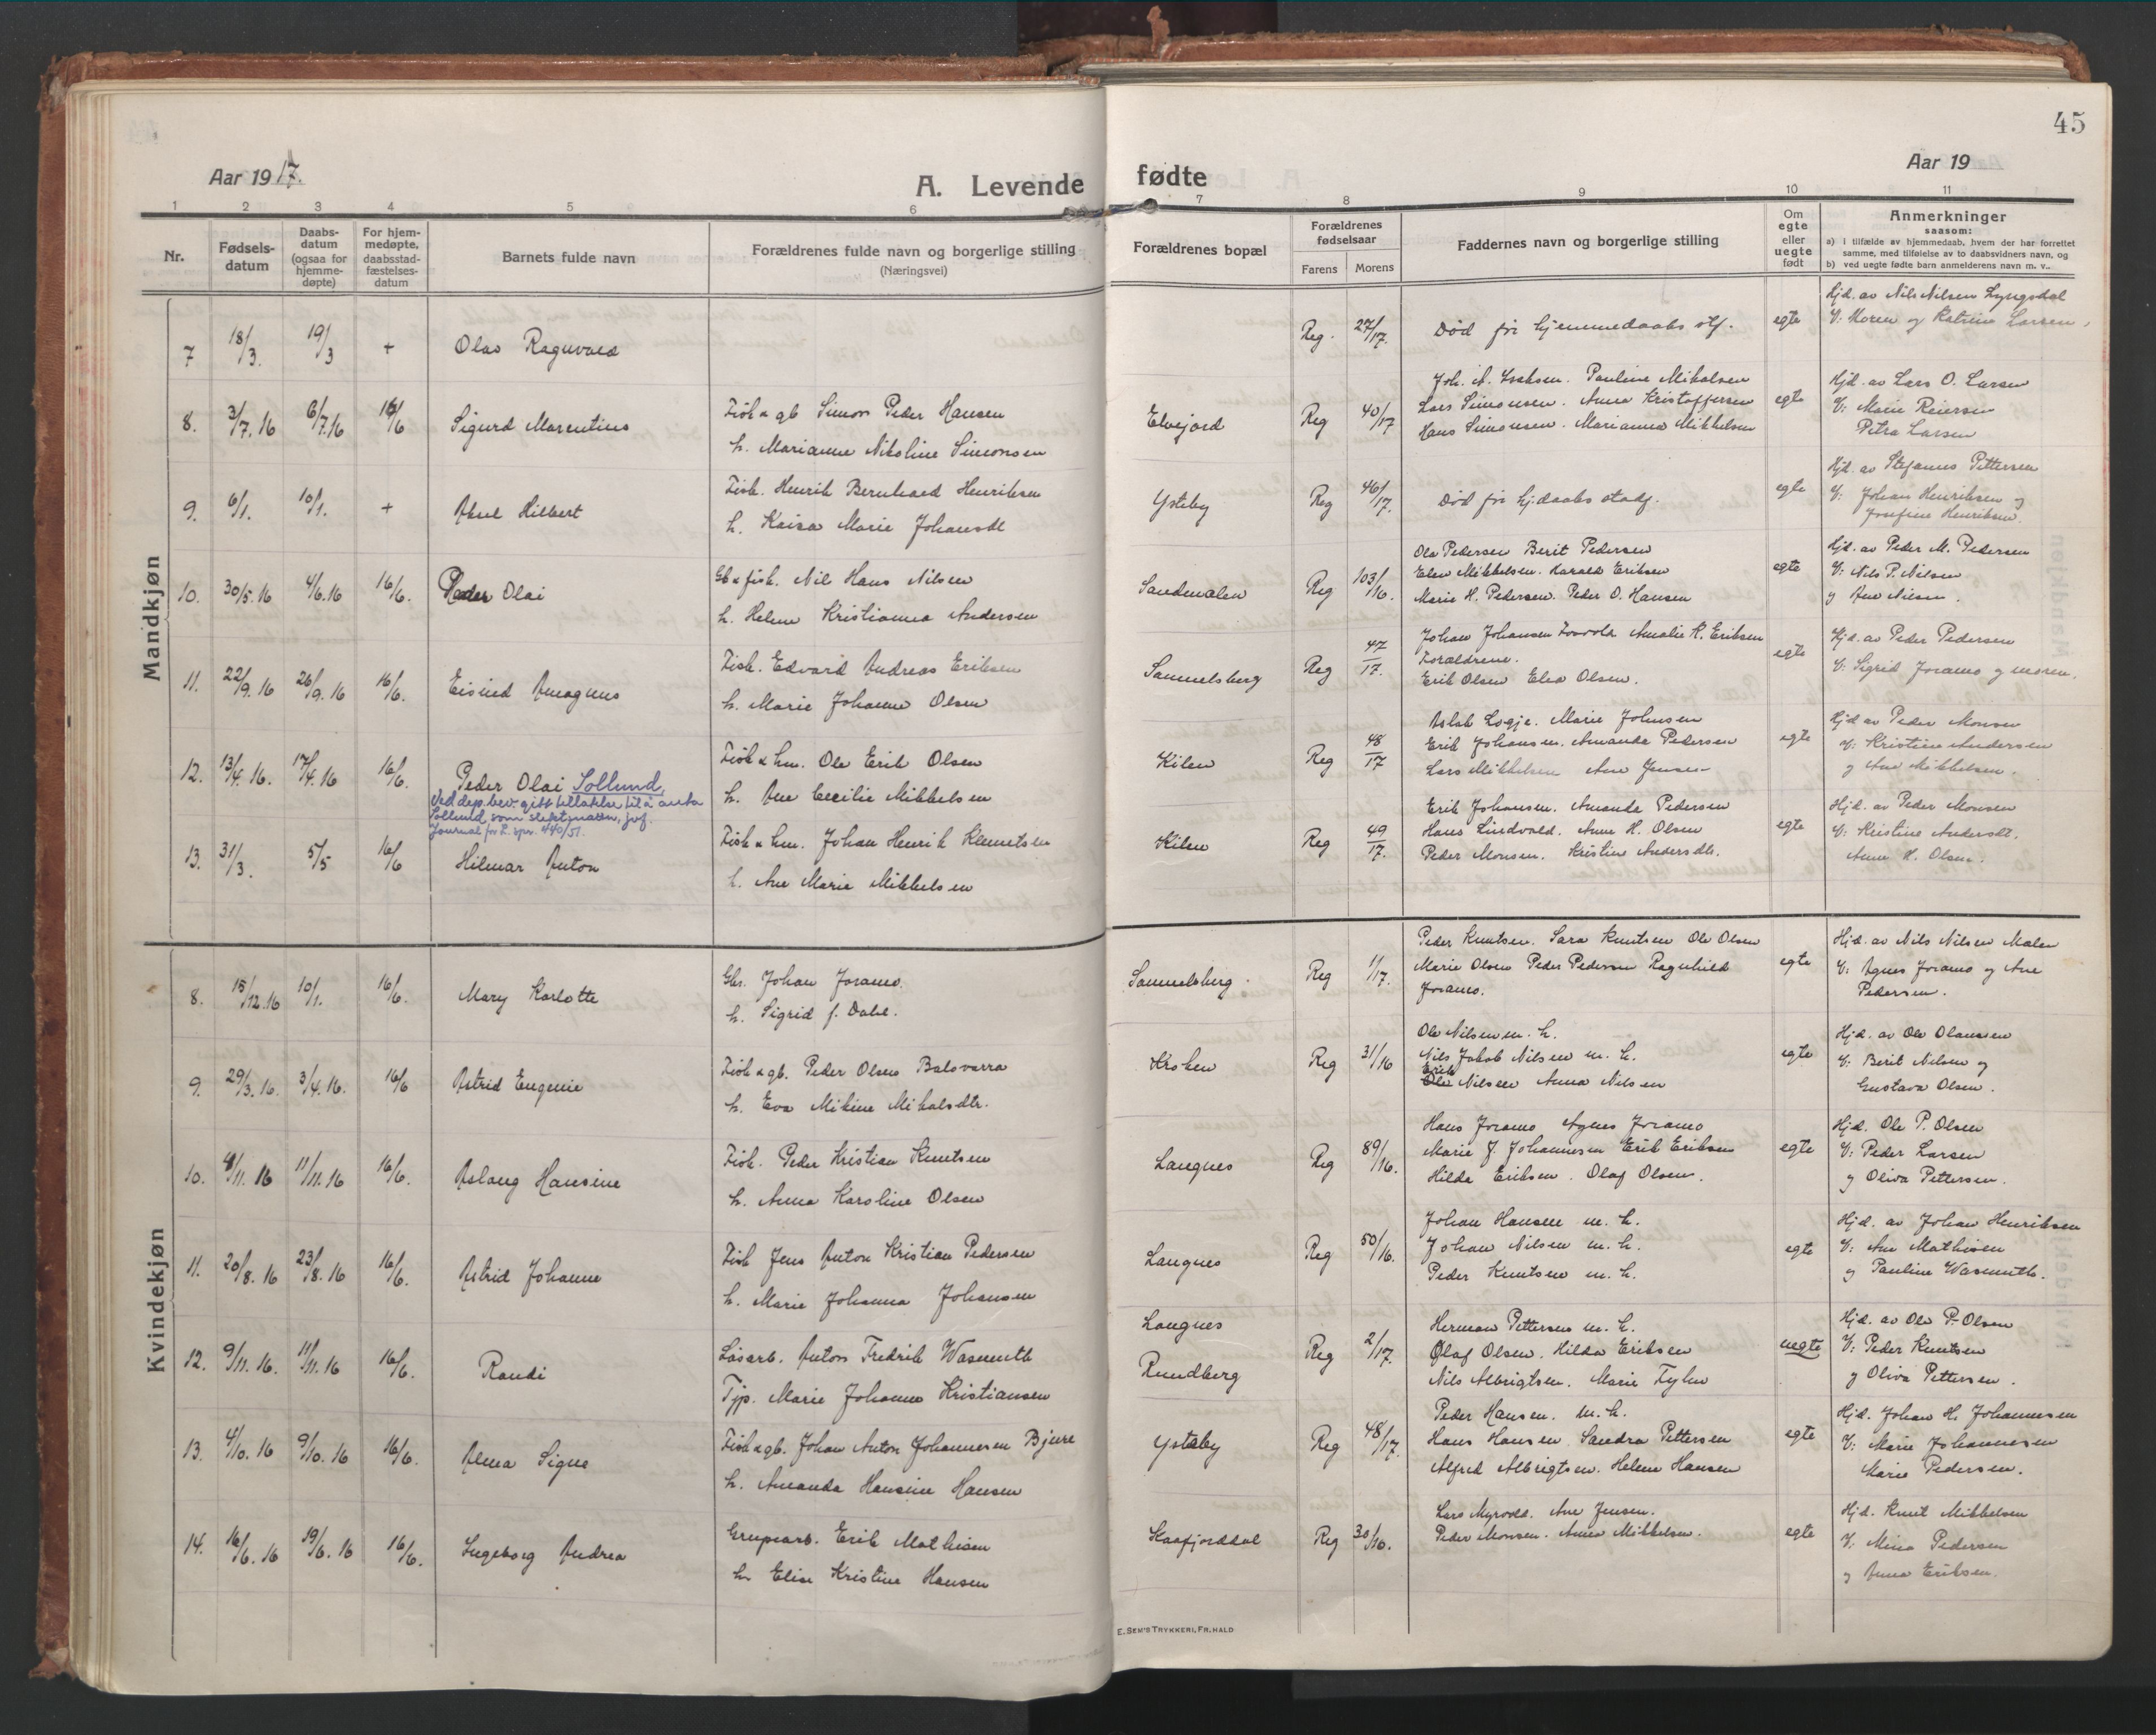 45
Aar 1917.
A. Levende fødte
Aar 19
1 2 3 4 5 6 7 8 9 10 11
Nr.
Fødsels-
datum
Daabs-
datum
(ogsaa for
hjemme-
døpte)
For hjem-
medøpte,
daabsstad-
fæstelses-
datum
Barnets fulde navn
Forældrenes fulde navn og borgerlige stilling
(Næringsvei)
Forældrenes bopæl
Forældrenes
fødselsaar
Farens Morens
Faddernes navn og borgerlige stilling
Om
egte
eller
uegte
født
Anmerkninger
saasom:
a) i tilfælde av hjemmedaab, hvem der har forrettet
samme, med tilføielse av to daabsvidners navn, og
b) ved uegte fødte barn anmelderens navn m. v..
Mandkjøn
7 18/3. 19/3 + Olav Ragnvald
Reg. 27/17. Død før hjemmedaabs stf. egte
Hjd. av Nils Nilsen Lyngsdal
V: Moren og Katrine Larsen
8. 3/7. 16 6/7.16 16/6 Sigurd Marentius
Fisk & gb Simon Peder Hansen
h. Marianne Nikoline Simonsen
Elvejord Reg 40/17
Joh. A. Isaksen. Pauline Mikalsen
Lars Simonsen. Anna Kristoffersen
Hans Simonsen. Marianna Mikkelsen
egte
Hjd. av Lars O. Larsen
V: Marie Reiersen
Petra Larsen
9. 6/1. 10/1. + Aksel Hilbert
Fisk. Henrik Bernhard Henriksen
h. Kaisa Marie Johansdt
Ysteby Reg 46/17.
Død før hjdaabs stadf.
egte
Hjd. av Stefanus Pettersen
V: Johan Henriksen og
Josefine Henriksen.
10. 30/5.16 4/6.16 16/6. Peder Olai
Gb & fisk. Nil Hans Nilsen
h. Helene Kristianna Andersen
Sandmalen Reg 103/16.
Ole Pedersen Berit Pedersen
Elen Mikkelsen. Harald Eriksen
Marie H. Pedersen. Peder O. Hansen
egte
Hjd. av Peder M. Pedersen
V: Nils P. Nilsen
og Ane Nilsen.
11. 22/9.16 26/9.16 16/6. Eivind Magnus
Fisk. Edvard Andreas Eriksen
h. Marie Johanne Olsen
Sammelsberg Reg 47/17.
Johan Johansen Amalie K. Eriksen
Forældrene.
Erik Olsen Elea Olsen.
egte
Hjd. av Peder Pedersen
V: Sigrid Joramo og moren.
12. 13/4.16. 17/4.16 16/6. Peder Olai Sollund,
Ved dep. bev. gitt tillatelse til å anta
Sollund som slektsnavn, jvf.
Journal for L. spr. 440/51.
Fisk & hm. Ole Erik Olsen
h. Ane Cecilie Mikkelsen
Kilen Reg 48/17
Aslak Logje. Marie Johnsen
Erik Johansen. Amanda Pedersen
Lars Mikkelsen Ane Jensen
egte
Hjd av Peder Monsen
V: Kristine Andersen
og Ane Mikkelsen.
13. 31/3. 5/5 16/6 Hilmar Anton
Fisk & hm. Johan Henrik Klemetsen
h. Ane Marie Mikkelsen
Kilen Reg 49/17.
Erik Johansen. Amanda Pedersen
Hans Lindvald. Anne H. Olsen
Peder Monsen. Kristine Andersdtr.
egte
Hjd. av Peder Monsen
V: Kristine Andersdt.
Anne H. Olsen.
Kvindekjøn
8. 15/12.16 10/1. 16/6. Mary Karlotte
Gbr. Johan Joramo.
h. Sigrid f. Dahl.
Sammelsberg. Reg 11/17.
Peder Knutsen. Sara Knutsen Ole Olsen
Marie Olsen Peder Pedersen Ragnhild
Joramo.
egte
Hjd. av Nils Nilsen Malen
V: Agnes Joramo og Ane
Pedersen.
9. 29/3.16. 3/4.16. 16/6 Astrid Eugenie
Fisk & gb. Peder Olsen Balsvarra
h. Eva Mikine Mikalsdtr.
Kroken Reg 31/16
Ole Nilsen m. h.
Nils Jakob Nilsen m. h.
Erik
Ole Nilsen Anna Nilsen
egte
Hjd. av Ole Olausen
V: Berit Nilsen og
Gustava Olsen.
10. 8/11.16 11/11.16 16/6. Aslaug Hansine
Fisk. Peder Kristian Knutsen
h. Anna Karoline Olsen
Langnes Reg 89/16.
Hans Joramo Agnes Joramo
Marie J. Johannesen Erik Eriksen
Hilda Eriksen. Olaf Olsen.
egte
Hjd. Ole P. Olsen
V: Peder Larsen
og Oliva Pettersen.
11. 20/8.16 23/8.16 16/6. Astrid Johanne
Fisk Jens Anton Kristian Pedersen
h. Marie Johanna Johansen
Langnes Reg 50/16.
Johan Hansen m. h.
Johan Nilsen m. h.
Peder Knutsen m. h.
egte
Hjd. av Johan Henriksen
V: Ane Mathisen
og Pauline Wasmuth.
12. 9/11.16. 11/11.16 16/6. Randi
Løsarb. Anton Fredrik Wasmuth
Tjp. Marie Johanne Kristiansen
Langnes
Rundberg Reg 2/17.
Herman Pettersen m. h.
Olaf Olsen. Hilda Eriksen
Nils Albrigtsen. Marie Fyhn
uegte
Hjd. av Ole P. Olsen
V: Peder Knutsen
og Oliva Pettersen.
13. 4/10.16 9/10.16 16/6. Alma Signe
Fisk & gb. Johan Anton Johannesen Bjure
h. Amanda Hansine Hansen
Ysteby Reg 48/17.
Peder Hansen. m. h.
Hans Hansen. Sandra Pettersen
Alfred Albrigtsen. Helene Hansen
egte
Hjd. Johan H. Johannesen
V: Marie Johannesen
Marie Pedersen.
14. 16/6.16 19/6.16 16/6. Ingeborg Andrea
Grupearb. Erik Mathisen
h. Elise Kristine Hansen
Kaafjorddal Reg 30/16.
Lars Myrvold. Ane Jensen.
Peder Monsen. Anna Mikkelsen.
egte
Hjd. Knut Mikkelsen
V: Mina Pedersen
og Anna Eriksen.
E. SEM'S TRYKKERI, FR.HALD